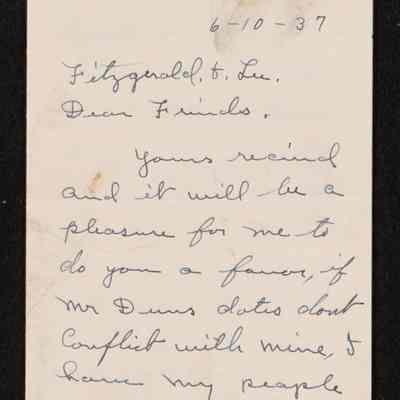 6-10-37
Fitzgerald, & Lee.
Dear Frinds.
Yours recind
and it will be a
pleasure for me to
do you a favor, if
Mr Duns dates dont
Conflict with mine, I
have my people